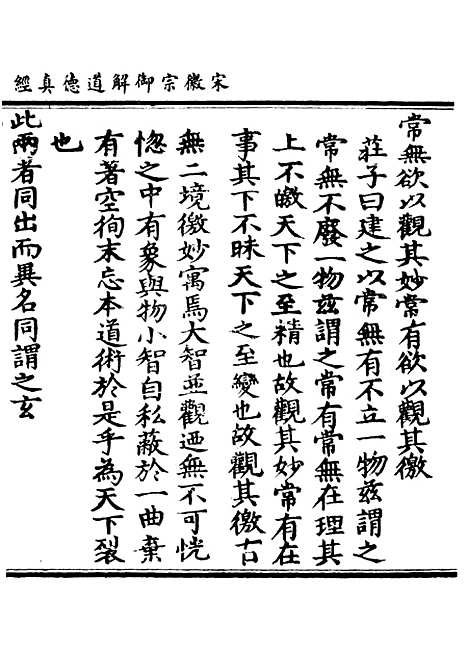 宋徽宗御解道德真經
常無欲以觀其妙常有欲以觀其徼
莊子曰建之以常無有不立一物茲謂之
常無不廢一物茲謂之常有常無在理其
上不皦天下之至精也故觀其妙常有在
事其下不昧天下之至變也故觀其徼有
無二境徼妙寓焉大智並觀迺無不可恍
惚之中有象與物小智自私蔽於一曲棄
有著空徇末忘本道術於是乎為天下裂
也
此兩者同出而異名同謂之玄